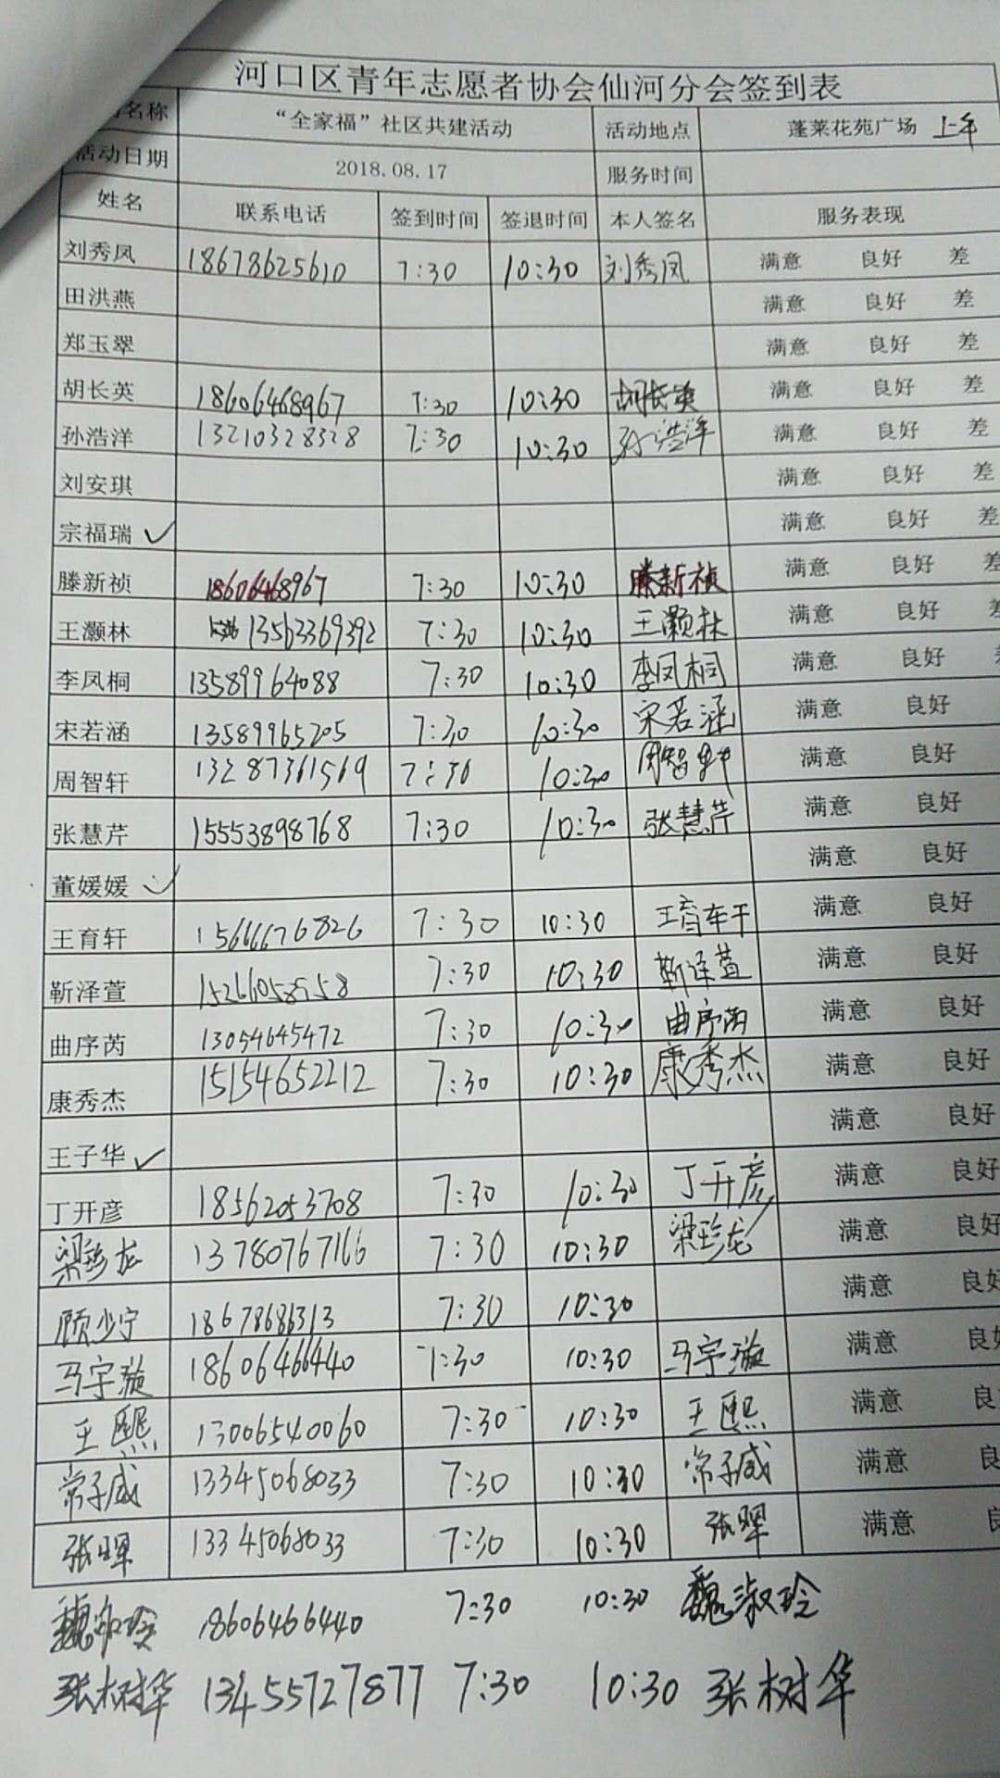 河口区青年志愿者协会仙河分会签到表
名称 “全家福”社区共建活动 活动地点 蓬莱花苑广场 上午
活动日期 2018.08.17 服务时间
姓名 联系电话 签到时间 签退时间 本人签名 服务表现
刘秀凤 18678625610 7:30 10:30 刘秀凤 满意 良好 差
田洪燕 满意 良好 差
郑玉翠 满意 良好 差
胡长英 18606468967 7:30 10:30 胡长英 满意 良好 差
孙浩洋 13210328328 7:30 10:30 孙浩洋 满意 良好 差
刘安琪 满意 良好 差
宗福瑞 ✓ 满意 良好 差
滕新祯 18606468967 7:30 10:30 滕新祯 满意 良好 差
王灏林 13563369392 7:30 10:30 王灏林 满意 良好 差
李凤桐 13589964088 7:30 10:30 李凤桐 满意 良好
宋若涵 13589965205 7:30 10:30 宋若涵 满意 良好
周智轩 13287361569 7:30 10:30 周智轩 满意 良好
张慧芹 15553898768 7:30 10:30 张慧芹 满意 良好
董媛媛 ✓ 满意 良好
王育轩 15666676826 7:30 10:30 王育轩 满意 良好
靳泽萱 7:30 10:30 靳泽萱 满意 良好
曲序芮 13054645472 7:30 10:30 曲序芮 满意 良好
康秀杰 15154652212 7:30 10:30 康秀杰 满意 良好
王子华 ✓ 满意 良好
丁开彦 18562053708 7:30 10:30 丁开彦 满意 良好
梁珍龙 13780767166 7:30 10:30 梁珍龙 满意 良好
顾少宁 18678686313 7:30 10:30 满意 良好
马宇漩 18606466440 7:30 10:30 马宇漩 满意 良好
王熙 13006540060 7:30 10:30 王熙 满意 良
常子威 13345068033 7:30 10:30 常子威 满意 良
张晖 13345068033 7:30 10:30 张晖 满意 良
魏淑玲 18606466440 7:30 10:30 魏淑玲
张树华 13455727877 7:30 10:30 张树华